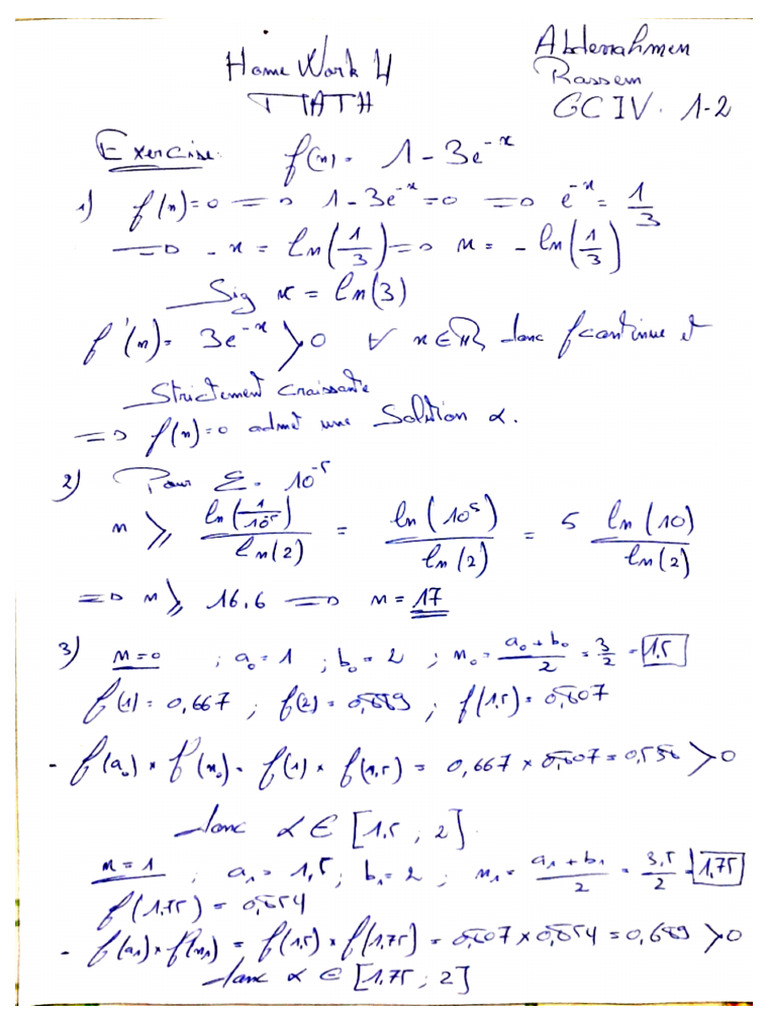 Home Work 4
MATH
Abderrahmen
Rassem
GC IV. 1-2
Exercise: f(x) = 1 - 3e^-x
1) f(x)=0 ⇒ 1-3e^-x=0 ⇒ e^-x = 1/3
⇒ -x = ln(1/3) ⇒ x = -ln(1/3)
Sig x = ln(3)
f'(x) = 3e^-x > 0 ∀ x∈ℝ donc f continue et
Strictement Croissante
⇒ f(x)=0 admet une Solution α.
2) Pour Ɛ = 10^-5
n ≥ ln(1/10^-5)/ln(2) = ln(10^5)/ln(2) = 5 ln(10)/ln(2)
⇒ n ≥ 16.6 ⇒ n = 17
3) n=0 ; a₀=1 ; b₀=2 ; x₀ = (a₀+b₀)/2 = 3/2 = 1,5
f(1) = 0,667 ; f(2) = ; f(1,5) =
- f(a₀) × f(x₀) = f(1) × f(1,5) = 0,667 × = > 0
donc α ∈ [1,5 ; 2].
n=1 ; a₁ = 1,5 ; b₁ = 2 ; x₁ = (a₁+b₁)/2 = 3,5/2 = 1,75
f(1,75) =
- f(a₁) × f(x₁) = f(1,5) × f(1,75) = = 0,689 > 0
donc α ∈ [1,75 ; 2]